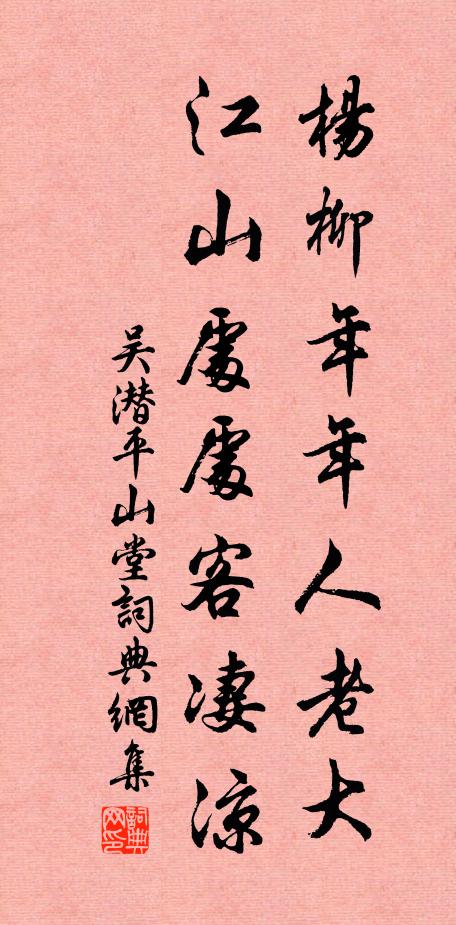 楊柳年年人老大
江山處處客凄涼
吴潜平山堂詞典網集
詞典网印